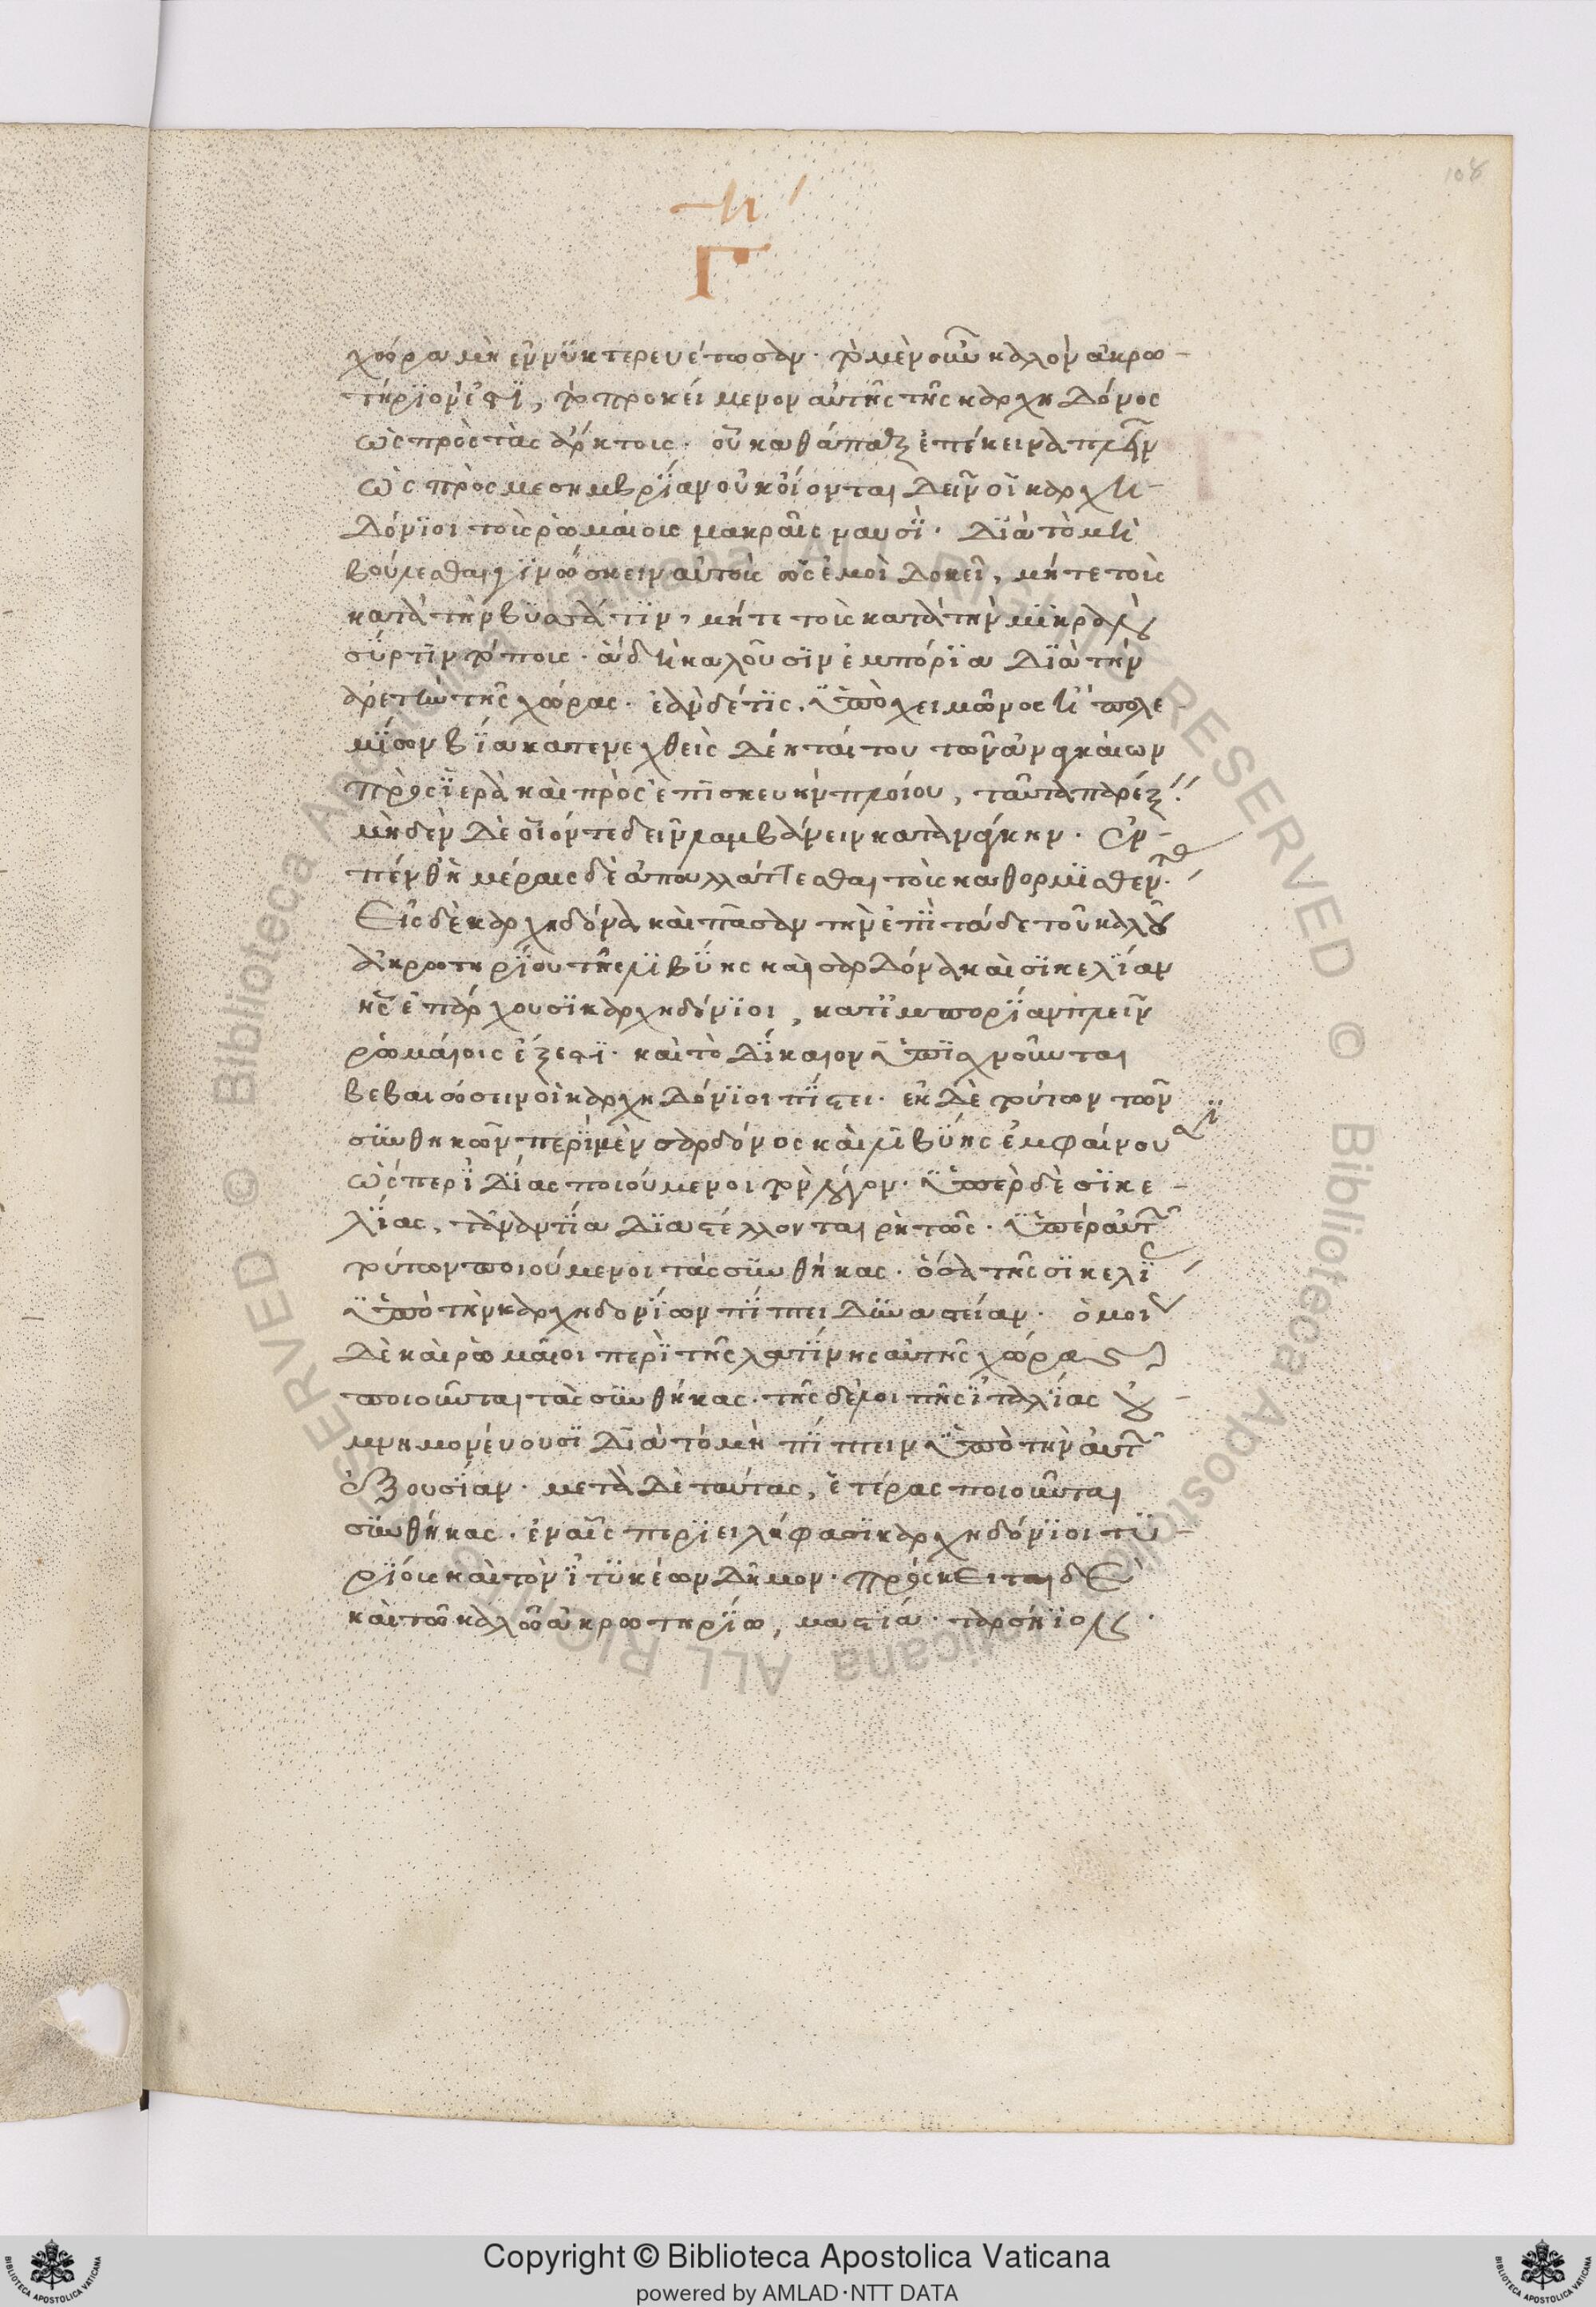 108
Γ
χώρα μὴ ἐννυκτερευέτωσαν· τὸ μὲν οὖν καλὸν ἀκρω-
τήριόν ἐστι, τὸ προκείμενον αὐτῆς τῆς καρχηδόνος
ὡς πρὸς τὰς ἄρκτους· οὗ καθάπαξ ἐπέκεινα πλεῖν
ὡς πρὸς μεσημβρίαν οὐκ οἴονται δεῖν οἱ καρχη-
δόνιοι τοὺς ῥωμαίους μακραῖς ναυσὶ· διὰ τὸ μὴ
βούλεσθαι γινώσκειν αὐτοὺς ὡς ἐμοὶ δοκεῖ, μήτε τοὺς
κατὰ τὴν βυσσάτιν, μήτε τοὺς κατὰ τὴν μικρὰν
σύρτιν τόπους· ἃ δὴ καλοῦσιν ἐμπόρια διὰ τὴν
ἀρετὴν τῆς χώρας· ἐὰν δέ τις, ὑπὸ χειμῶνος ἢ πολε
μίων βίᾳ κατενεχθεὶς δέηταί του τῶν ἀναγκαίων
πρὸς ἱερὰ καὶ πρὸς ἐπισκευὴν πλοίου, ταῦτα παρὲξ
μηδὲν δὲ οἴονται δεῖν λαμβάνειν κατανάγκην· ἐν-
πένθ' ἡμέραις δὲ ἀπαλλάττεσθαι τοὺς καθορμισθέντας
Εἰς δὲ καρχηδόνα καὶ πᾶσαν τὴν ἐπὶ τάδε τοῦ καλοῦ
ἀκρωτηρίου τῆς λιβύης καὶ σαρδόνα καὶ σικελίαν
ἧς ἐπάρχουσι καρχηδόνιοι, κατ' ἐμπορίαν πλεῖν
ῥωμαίοις ἔξεστι· καὶ τὸ δίκαιον ὑπισχνοῦνται
βεβαιώσειν οἱ καρχηδόνιοι πίστει· ἐκ δὲ τούτων τῶν
συνθηκῶν περὶ μὲν σαρδόνος καὶ λιβύης ἐμφαίνουσιν
ὡς περὶ ἰδίας ποιούμενοι τὸν λόγον· ὑπὲρ δὲ σικε-
λίας, τἀναντία διαστέλλονται ῥητῶς· ὑπὲρ αὐτῶν
τούτων ποιούμενοι τὰς συνθήκας· ὅσα τῆς σικελίας
ὑπὸ τὴν καρχηδονίων πίπτει δυναστείαν· ὁμοίως
δὲ καὶ ῥωμαῖοι περὶ τῆς λατίνης αὐτῆς χώρας
ποιοῦνται τὰς συνθήκας· τῆς δὲ λοιπῆς ἰταλίας οὐ-
μνημονεύουσι διὰ τὸ μὴ πίπτειν ὑπὸ τὴν αὐτῶν
ἐξουσίαν· μετὰ δὲ ταύτας, ἑτέρας ποιοῦνται
συνθήκας· ἐν αἷς περιειλήφασι καρχηδόνιοι τυ-
ρίους καὶ τὸν ἰτυκέων δῆμον· πρόσκειται δὲ
καὶ τῷ καλῷ ἀκρωτηρίῳ, μαστιά· ταρσήιον·
Copyright © Biblioteca Apostolica Vaticana
powered by AMLAD·NTT DATA